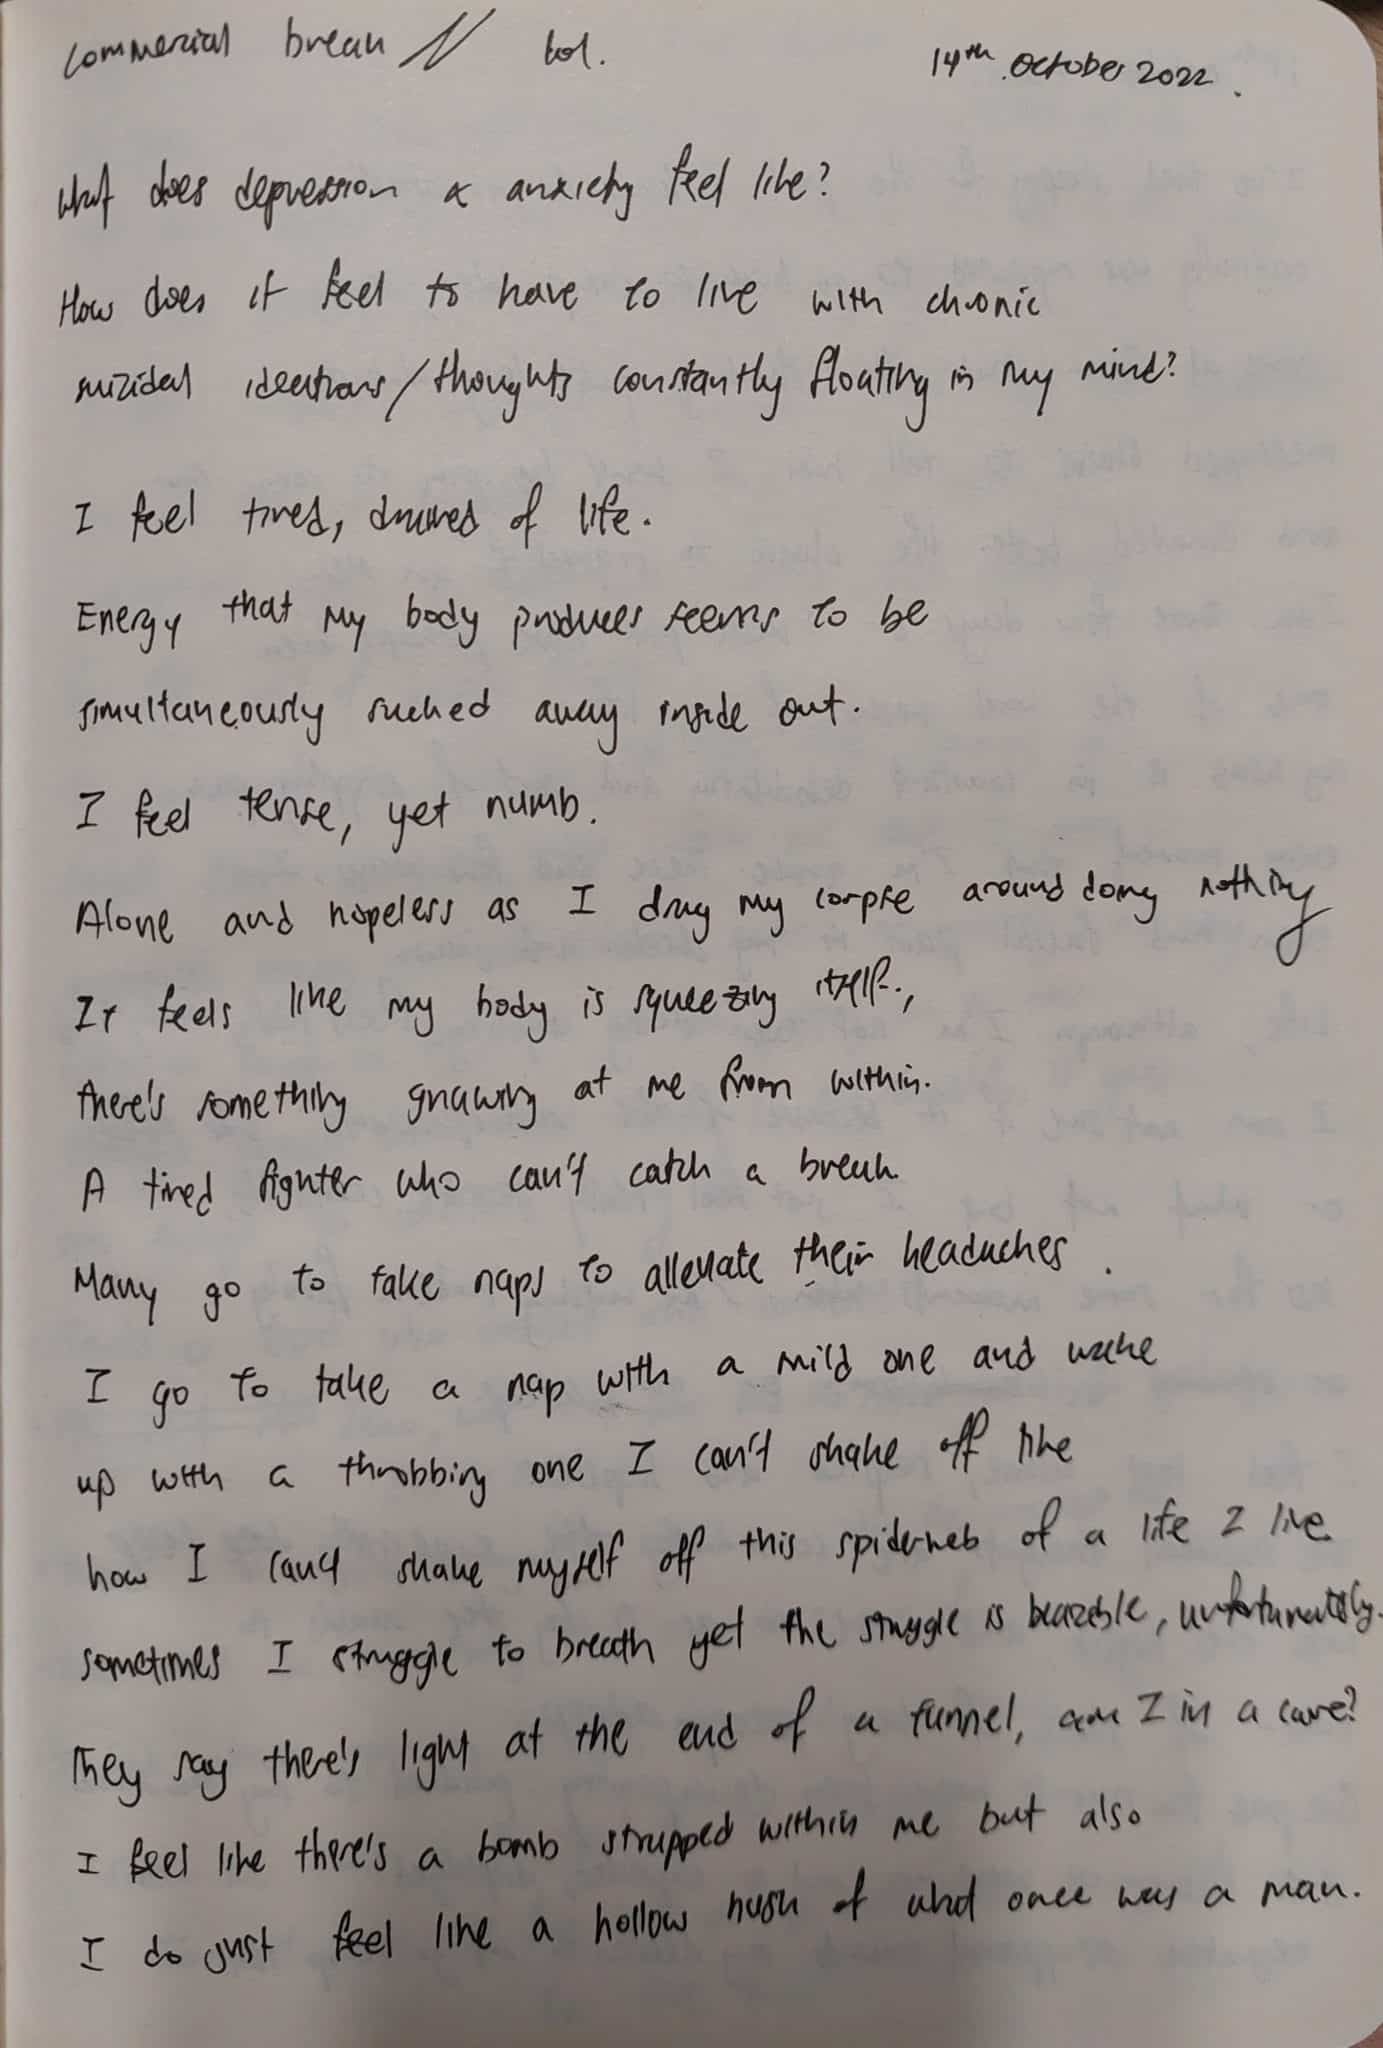 commercial break // lol.
14th October 2022.
What does depression & anxiety feel like?
How does it feel to have to live with chronic
suicidal ideations/thoughts constantly floating in my mind?
I feel tired, drained of life.
Energy that my body produces seems to be
simultaneously sucked away inside out.
I feel tense, yet numb.
Alone and hopeless as I drag my corpse around doing nothing
It feels like my body is squeezing itself.,
there's something gnawing at me from within.
A tired fighter who can't catch a break.
Many go to take naps to alleviate their headaches.
I go to take a nap with a mild one and wake
up with a throbbing one I can't shake off like
how I can't shake myself off this spiderweb of a life I live
sometimes I struggle to breath yet the struggle is bearable, unfortunately.
They say there's light at the end of a tunnel, am I in a cave?
I feel like there's a bomb strapped within me but also
I do just feel like a hollow husk of what once was a man.